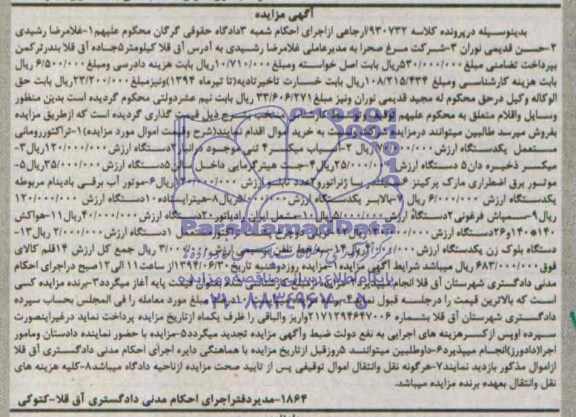 آگهی مزایده
بدینوسیله درپرونده کلاسه ۹۳۰۷۳۲/ارجاعی ازاجرای احکام شعبه ۳دادگاه حقوقی گرگان محکوم علیهم ۱-غلامرضا رشیدی
۲-حسن قدیمی نوران ۳-شرکت مرغ صحرا به مدیرعاملی غلامرضا رشیدی به آدرس آق قلا کیلومتر۵جاده آق قلا بندرترکمن
بپرداخت تضامنی مبلغ ۵۳۰/۰۰۰/۰۰۰ریال بابت اصل خواسته ومبلغ ۱۰/۷۱۰/۰۰۰ریال بابت هزینه دادرسی ومبلغ ۶/۵۰۰/۰۰۰ ریال
بابت هزینه کارشناسی ومبلغ ۱۰۸/۲۱۵/۴۳۴ریال بابت خسارت تاخیرتادیه(تا تیرماه ۱۳۹۴)ونیزمبلغ ۲۳/۲۰۰/۰۰۰ریال بابت حق
الوکاله وکیل درحق محکوم له مجید قدیمی نوران ونیز مبلغ ۳۳/۶۰۶/۲۷۱ ریال بابت نیم عشردولتی محکوم گردیده است بدین منظور
وسایل واقلام متعلق به محکوم علیهم توقیف و کارشناس منتخب بشرح ذیل قیمت گذاری گردیده است که ازطریق مزایده
بفروش میرسد طالبین میتوانند درمزایده شرکت ونسبت به خرید اموال اقدام نمایند(شرح وقیمت اموال مورد مزایده)۱-تراکتوررومانی
مستعمل یکدستگاه ارزش ریال ۲-آسیاب میکسر ۴ تنی موجود درانبار ۲دستگاه ارزش ۱۲۰/۰۰۰/۰۰۰ریال۳-
میکسر ذخیره دان۵ دستگاه ارزش ۲۵/۰۰۰/۰۰۰ریال۴-جت هیترگرمایی داخل سالن ۵دستگاه ارزش ۳۵/۰۰۰/۰۰۰ریال۵-
موتور برق اضطراری مارک پرکینز ۶ سیلندر با ژنراتور۲عدد تابلو ارزش ریال۶-موتور آب برقی بادینام مربوطه
یکدستگاه ارزش ۶/۰۰۰/۰۰۰ ریال ۷-بالابر یکدستگاه ارزش ریال۸-هیترآماده۱۰دستگاه ارزش ۱۲۰/۰۰۰/۰۰۰
ریال۹-سمپاش فرغونی۲دستگاه ارزش ریال۱۰-مشعل ایران رادیاتور۲۰دستگاه ارزش ۴۰/۰۰۰/۰۰۰ریال۱۱-هواکش
۱۴۰*۱۴۰و۲۶دستگاه ارزش دستگاه ارزش ۲/۰۰۰/۰۰۰ ریال۱۳-
دستگاه بلوک زن یکدستگاه ارزش ریال ۱۴- خط تلفن ۳/۰۰۰/۰۰۰ ریال جمع کل ارزش ۱۴قلم کالای
فوق ۶۸۳/۰۰۰/۰۰۰ ریال میباشد شرایط آگهی مزایده ۱-مزایده روزدوشنبه تاریخ۱۳۹۴/۰۶/۳۰ازساعت۱۱الی۱۲صبح دراجرای احکام
مدنی دادگستری شهرستان آق قلا انجام پایه آغاز میگردد۳-برنده مزایده کسی
است که بالاترین قیمت را درجلسه قبول نماید مبلغ مورد معامله را فی المجلس بحساب سپرده
دادگستری شهرستان آق قلا بشماره ۲۱۷۱۲۹۴۶۴۷۰۰۶واریز والباقی را ظرف یکماه ازتاریخ مزایده پرداخت نماید درغیراینصورت
سپرده اوپس ازکسرهزینه های اجرایی به نفع دولت ضبط ومزایده تجدید میگردد۵-مزایده با حضور نماینده دادستان ومامور
اجرا(دادورز)انجام میپذیرد۶-داوطلبین میتوانند ۵روزقبل ازتاریخ مزایده با هماهنگی دایره اجرای احکام مدنی دادگستری آق قلا
ازاموال مذکور بازدید نمایند۷-هرگونه نقل وانتقال اموال توقیفی پس از تایید صحت مزایده ازناحیه دادگاه میباشد۸-کلیه هزینه های
نقل وانتقال بعهده برنده مزایده میباشد.
۱۸۶۴-مدیردفتراجرای احکام مدنی دادگستری آق قلا-کتوکی
ParsNamadData
پایگاه اطلاع رسانی مناقصه و مزایده
۰۲۱-۸۸۳۴۹۶۷۰-۵